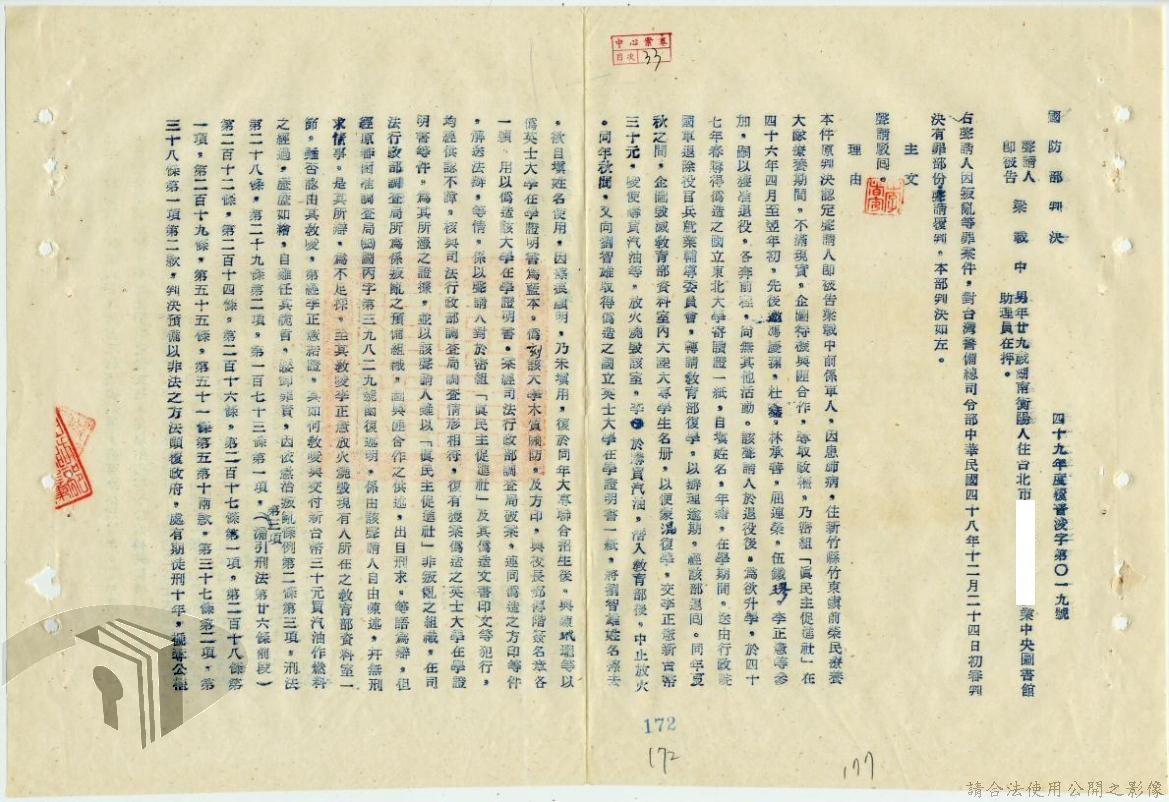 中心案卷
目次 33
國防部判決
四十九年度覆普淩字第〇一九號
聲請人
即被告 梁戰中 男年廿九歲湖南衡陽人住台北市 業中央圖書館
助理員在押。
右聲請人因叛亂等罪案件，對台灣警備總司令部中華民國四十八年十二月二十四日初審判
決有罪部份聲請覆判，本部判決如左。
主文
聲請駁回。
理由
本件原判決認定聲請人即被告梁戰中前係軍人，因患肺病，住新竹縣竹東鎮前榮民療養
大隊療養期間，不滿現實，企圖待機與匪合作，奪取政權，乃密組「眞民主促進社」在
四十六年四月至翌年初，先後邀馮慶霖，杜 ，林承善，屈運榮，伍鐵 ，李正憲等參
加，嗣以獲准退役，各奔前程，尚無其他活動。該聲請人於退役後，為欲升學，於四十
七年春購得偽造之國立東北大學肄業證一紙，自填姓名，年籍，在學期間，送由行政院
國軍退除役官兵就業輔導委員會，轉請教育部復學，以辦理逾期，經該部退回。同年夏
秋之間，企圖毀滅教育部資料室內大陸大專學生名册，以便蒙混復學，交李正憲新台幣
三十元，唆使購買汽油等，放火燒毀該室，李 於購買汽油，潛入教育部後，中止放火
。同年秋間，又向劉智雄取得偽造之國立英士大學在學證明書一紙，將劉智雄姓名擦去
，欲自填姓名使用，因擦痕顯明，乃未填用，復於同年大專聯合招生後，與 玳瓏等以
偽英士大學在學證明書為藍本，偽刻該大學木質關防，及方印，與校長鄧傳階簽名章各
一顆，用以偽造該大學在學證明書。案經司法行政部調查局破案，連同偽造之方印等件
，解送法辦，等情，係以聲請人對於密組「眞民主促進社」及其偽造文書印文等犯行，
均經供認不諱，核與司法行政部調查局調查情形相符，復有獲案偽造之英士大學在學證
明書等件，為其所憑之證據，並以該聲請人雖以「眞民主促進社」非叛亂之組織，在司
法行政部調查局所為係叛亂之預備組織，圖與匪合作之供述，出自刑求，等語為辯，但
經原審函准調查局 丙字第三九八二九號函復述明，係由該聲請人自由陳述，幷無刑
求情事。是其所辯，為不足採，至其教唆李正憲放火燒毀現有人所在之教育部資料室一
節，雖否認由其教唆，第經李正憲結證，其如何教唆與交付新台幣三十元買汽油作燃料
之經過，歷歷如繪，自難任其 ，諉卸罪責，因依懲治叛亂條例第二條第三項，刑法
第二十八條，第二十九條第二項，第一百七十三條第一項，第三項（漏引刑法第廿六條前段）
第二百十二條，第二百十四條，第二百十六條，第二百十七條第一項，第二百十八條第
一項，第二百十九條，第五十五條，第五十一條第五第十兩款，第三十七條第二項，第
三十八條第一項第二款，判決預備以非法之方法顚覆政府，處有期徒刑十年，褫奪公權
172
172
177
請合法使用公開之影像